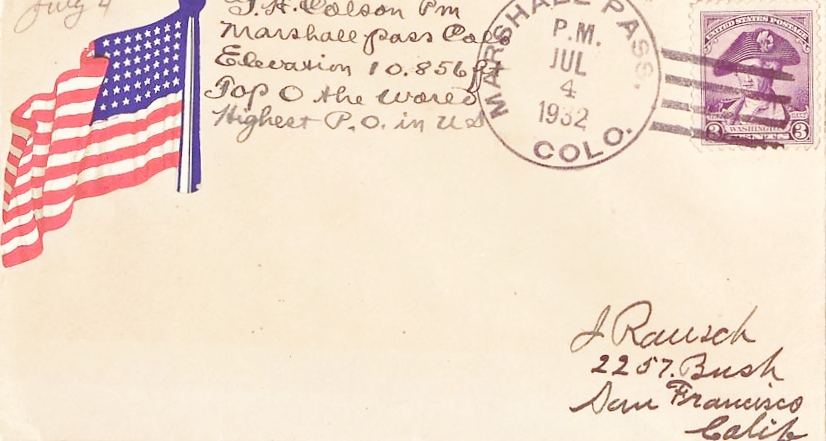 July 4
T. H. Colson Pm
Marshall pass Colo
Elevation 10.856 ft
Top O the World
Highest P.O. in US
MARSHALL PASS,
P.M.
JUL
4
1932
COLO.
UNITED STATES POSTAGE
3 WASHINGTON 3
CENTS
J Rausch
2257. Bush
San Francisco
Calif